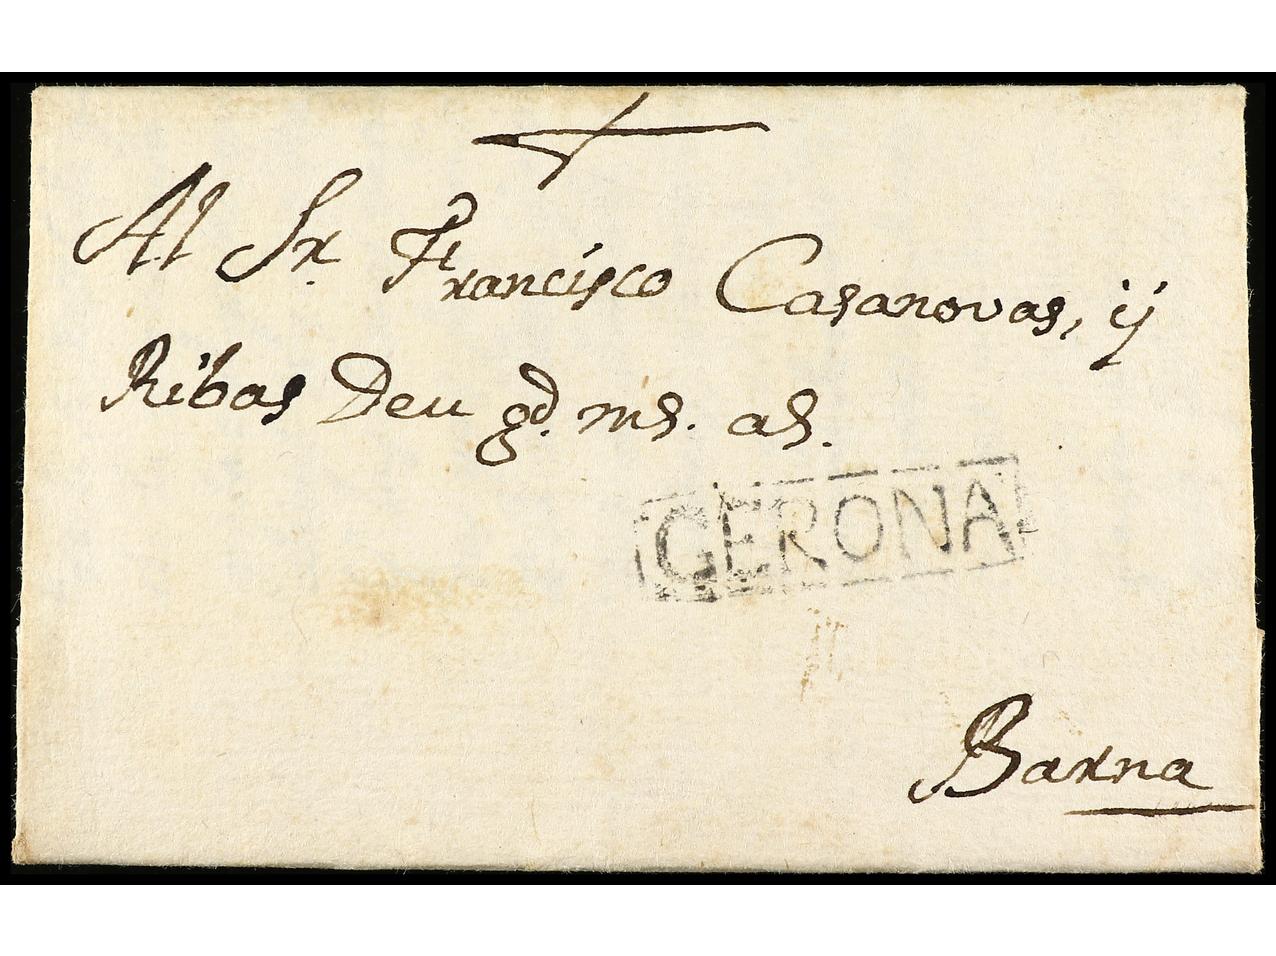 Al Sr. Francisco Casanovas, ÿ
Ribas Deu gd. ms. as.
GERONA
Barna